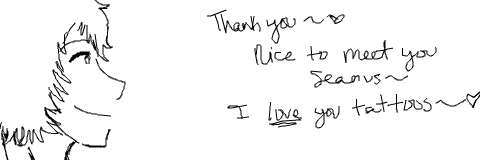 Thank you ~ ♡
Nice to meet you
Seanus ~
I love you tattoos ~ ♡